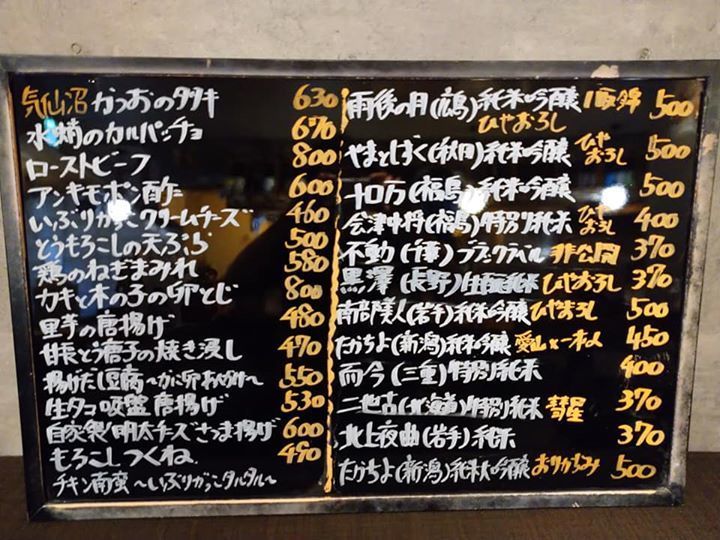 気仙沼 かつおのタタキ 630
水蛸のカルパッチョ 670
ローストビーフ 800
アンキモポン酢 600
いぶりがっこクリームチーズ 460
とうもろこしの天ぷら 500
鶏のねぎまみれ 580
カキと木の子の卵とじ 800
里芋の唐揚げ 480
甘長とう唐子の焼き浸し 470
揚げだし豆腐 〜かに卵あんかけ〜 550
生タコ吸盤唐揚げ 530
自家製明太チーズさつま揚げ 600
もろこしつくね 490
チキン南蛮 〜いぶりがっこタルタル〜
雨後の月(広島)純米吟醸 八反錦 500
ひやおろし
やまとしずく(秋田)純米吟醸 ひやおろし 500
十ロ万(福島)純米吟醸 500
会津中将(福島)特別純米 ひやおろし 400
不動(千葉)ブラックラベル 非公開 370
黒澤(長野)生酛純米 ひやおろし 370
南部美人(岩手)純米吟醸 ひやおろし 500
たかちよ(新潟)純米吟醸 愛山×一本〆 450
而今(三重)特別純米 400
二世古(北海道)特別純米 彗星 370
北上夜曲(岩手)純米 370
たかちよ(新潟)純米大吟醸 おりがらみ 500